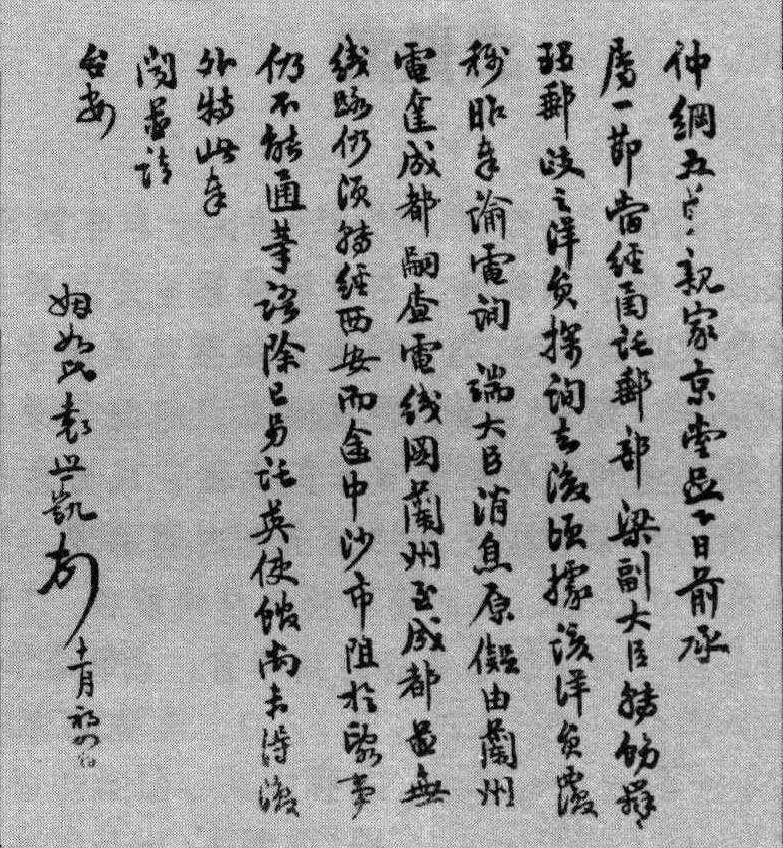 仲綱五哥親家京堂足下日前承
屬一節當經面託郵部 梁副大臣轉飭辦
理郵政之洋員探詢去後頃據該洋員覆
稱昨奉諭電詢 瑞大臣消息原擬由蘭州
電達成都嗣查電綫圖蘭州至成都並無
綫路仍須轉經西安而途中沙市阻於亂事
仍不能通等語除已另託英使館尚未得復
外特此奉
聞並請
台安
姻如兄袁世凱 十一月初四日